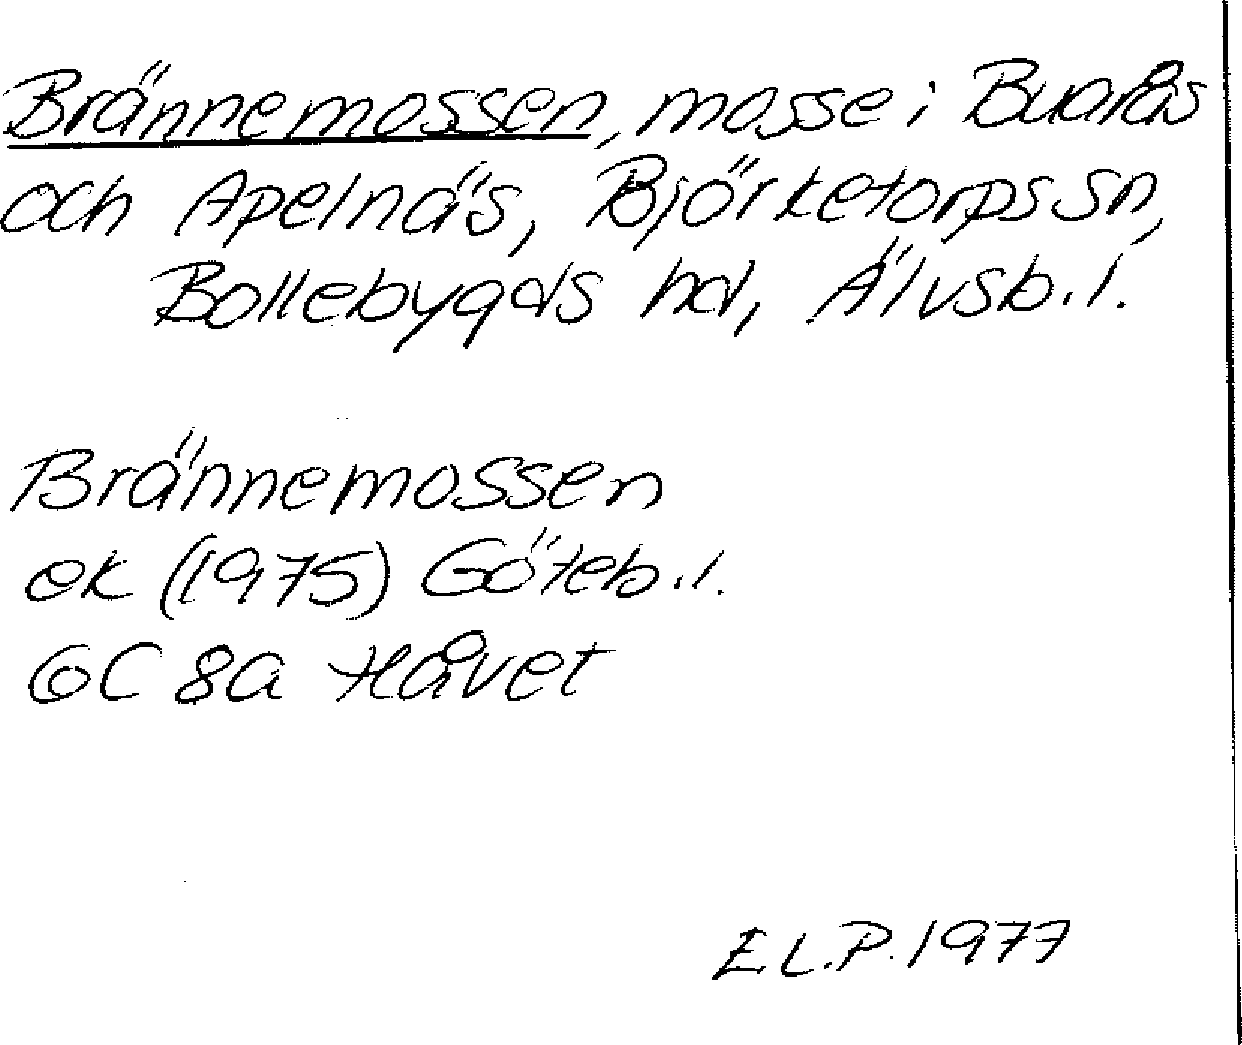 Brännemossen, mosse i Buarås
och Apelnäs, Björketorps sn,
Bollebygds hd, Älvsb. l.
Brännemossen
ek (1975) Göteb. l.
6C 8a Håvet
E L.P. 1977